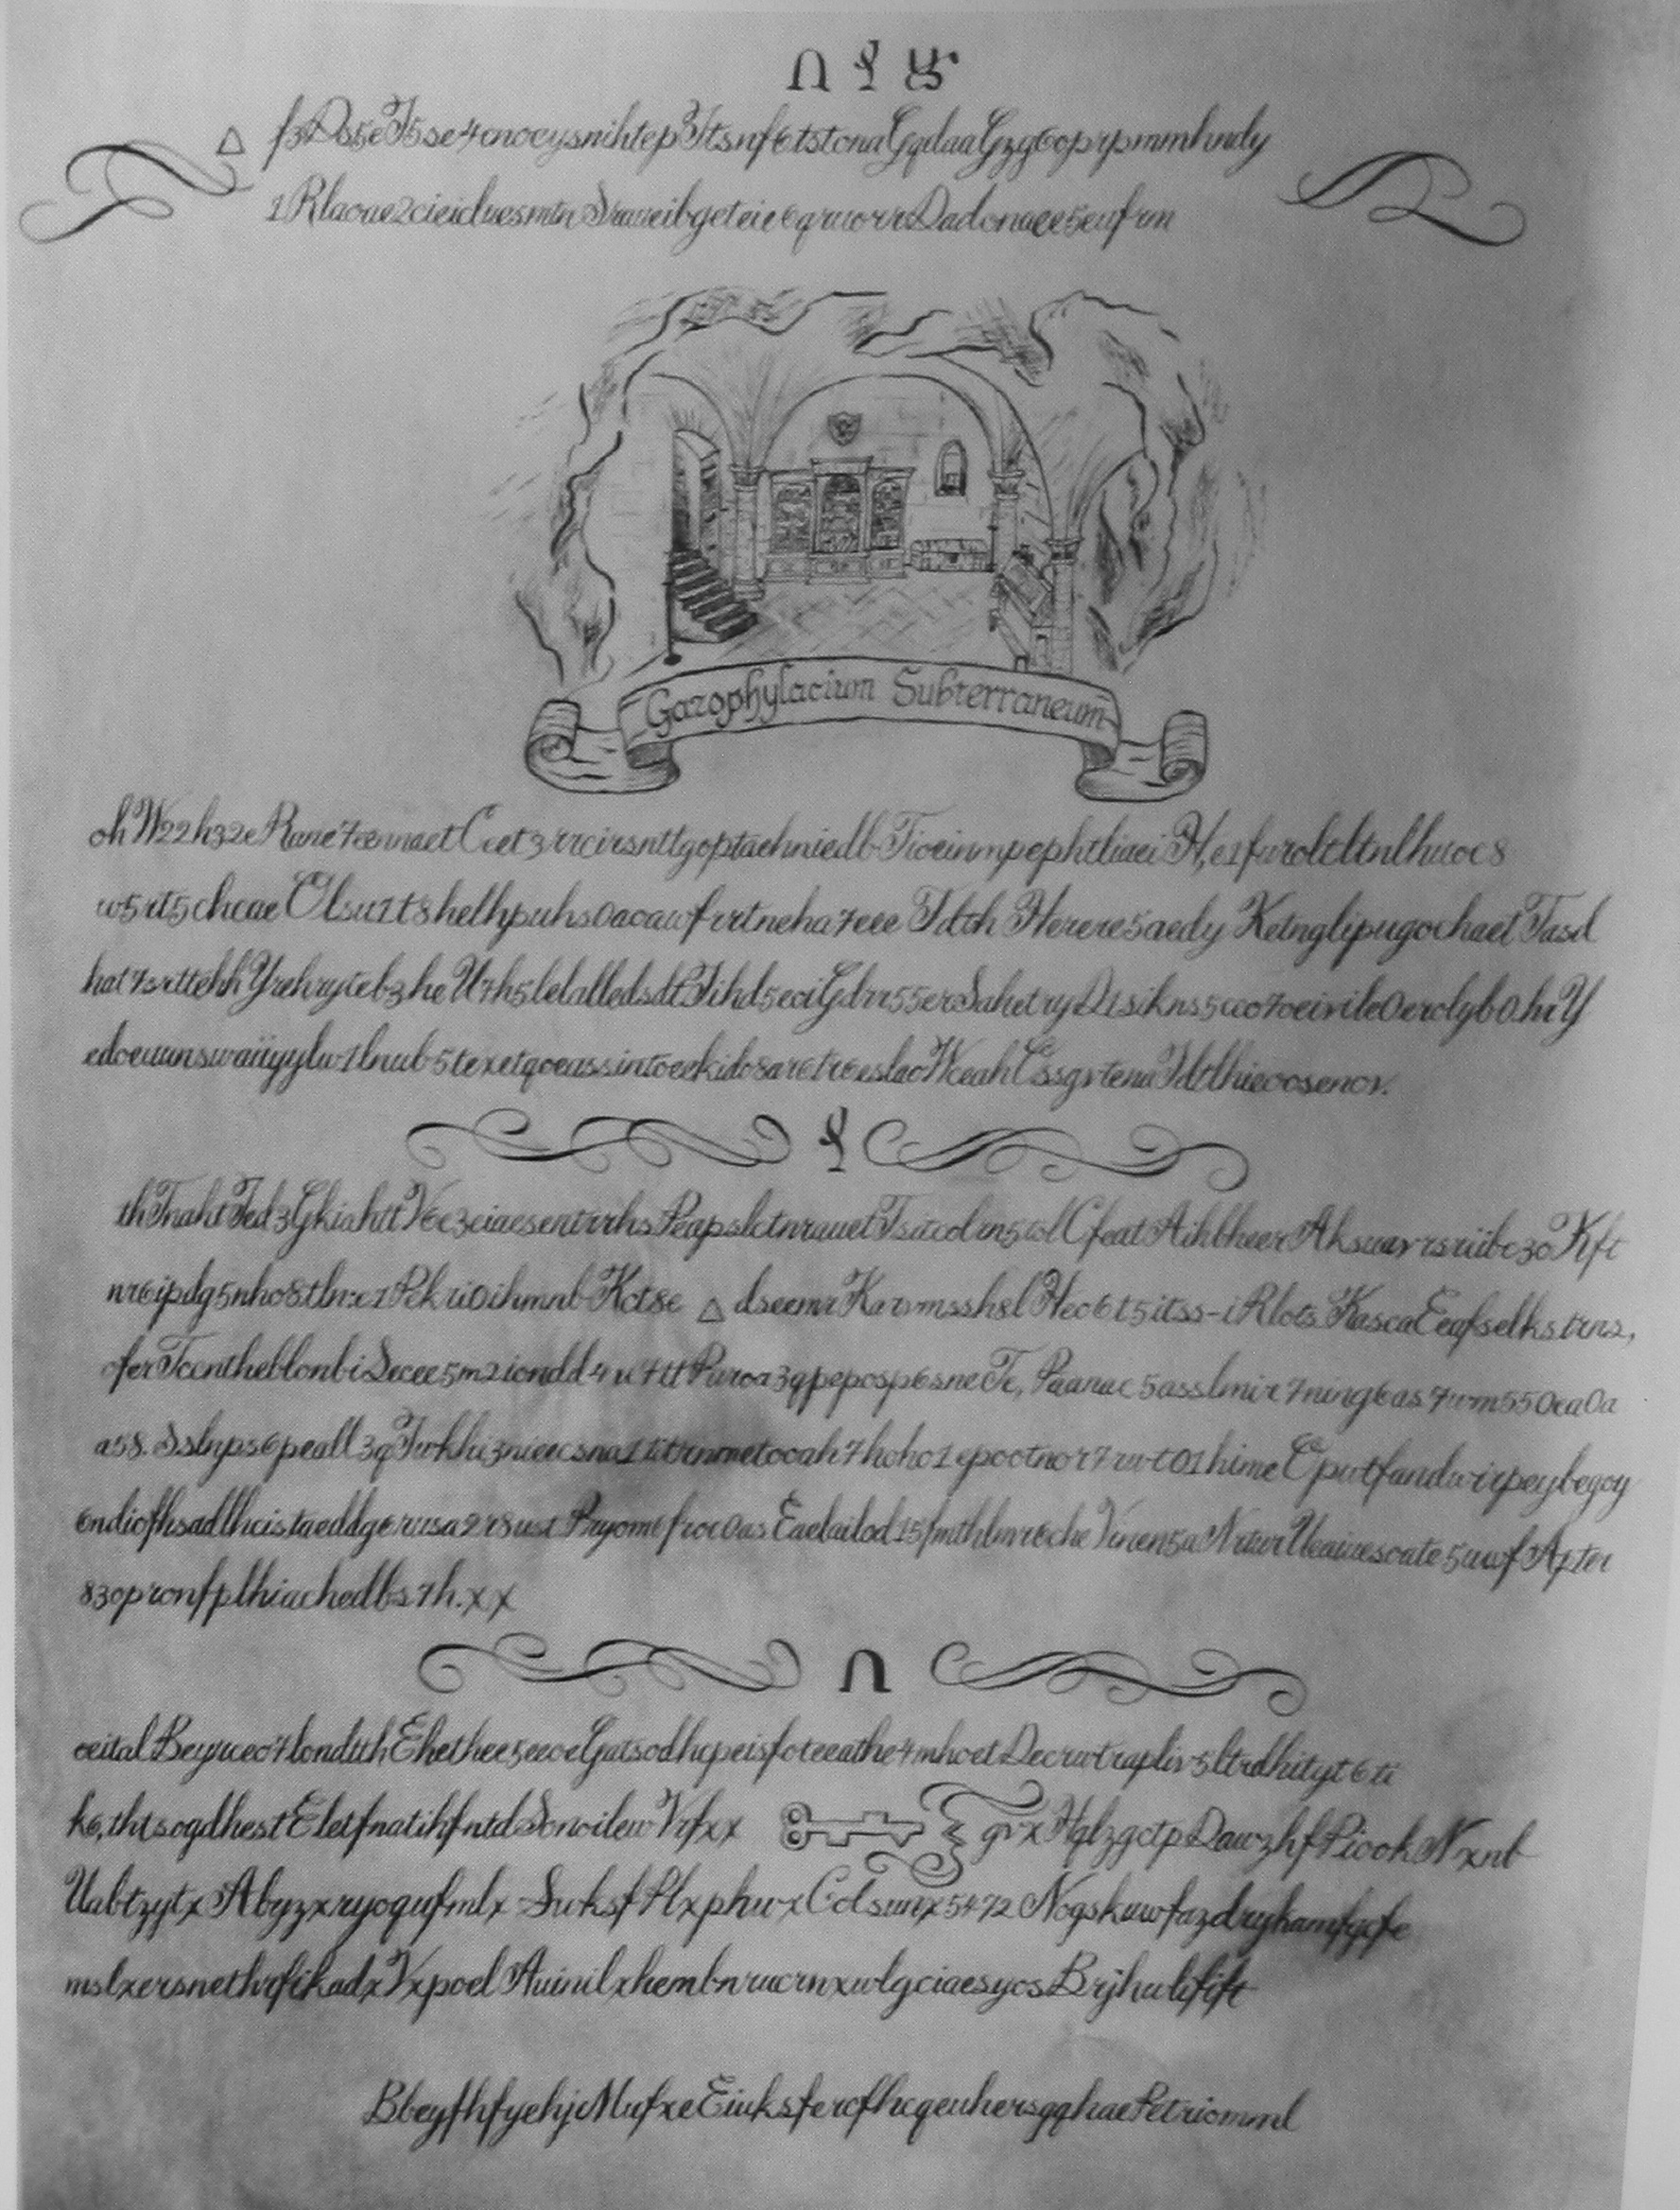 f3Ds5eT5se4cnoeysnihtepTtsnf6tstonaGqdaaGzy6oprpmmhndy
1Rlaoae2cieiduesmtnSraueibgeteie6qruorrsDadonaee5eufrm
Gazophylacium Subterraneum
ohW22h32eRane7cennaetCeet3rrcirsnttgoptaehniedb-TioeinmpephtliaeiH,e1furoltltnlhuocs
w5rt5chcaeOlsu1t8helhpuhs0aoawfrrtneha7eee Tdth Herere5aedy KetnglipugochaelTasd
hat7srttehhYrehryteb3heU7h5lelalledsdtTihd5eciGdrr55erSahetryD1sikns5uco7oeirile0erolyb0.hiY
edoeuunswaiiyylw1lnub5texetqoeussintoeekido8are6tr6eslaoWceahEssgrtenaTdtlhieoosenor.
thTnahtTed3GkiahttV6c3ciaesentrrhsPeapslctnrauetTsitcdm5tolCfeatAihbheerAksuarrsriibc30Kft
nr6ipdg5nho8tlme1Pekri0ihmnb-Kct8e dseemrKarvmsshslHec6t5itss-iRlotsKascaEeafselkstrns,
oferTocntheblonbiSecee5m2iondd4u7ttPuroa3qpeposp6sneTe, Paanac5asslmire7ning6as7wm550ea0a
a58.Sslnps6peall3qTwkhi3nieecsna11ttrnmetooah7hoho1epootnor7rwt01himeCpwtfandwirpeybegoy
6ndiofhsadlhcistaeddge6rusa2r8ustPryom6froc0asEaelailod15fmthlmr6cheVinen5aNruwrUeaiuesoate5uwfApter
830pronfplhiachedbs7h.xx
oeitalBeyrceo7londtthEhethee5eeoeGatsodhcpeisfoteeathe4mhoetDecrwtraplir5ltrdhityt6ti
k6,thtsogdhestEletfnatihfntdSonoilewVrfxx grxHglzgctpDawzhfPicokNrxnb
UabtzytxAbyzxryogufmlx-SuksfPlxphwxColsunx5472NogskuwfazdrykamfgqfemslxersnethrqfikadxVxpoelAuinilxhembnrucrnxwlgciaesyosBrjhulifift
BbeyfhfyehjcMufxeEiuksferofhcqeuhersgqhaePetriomml